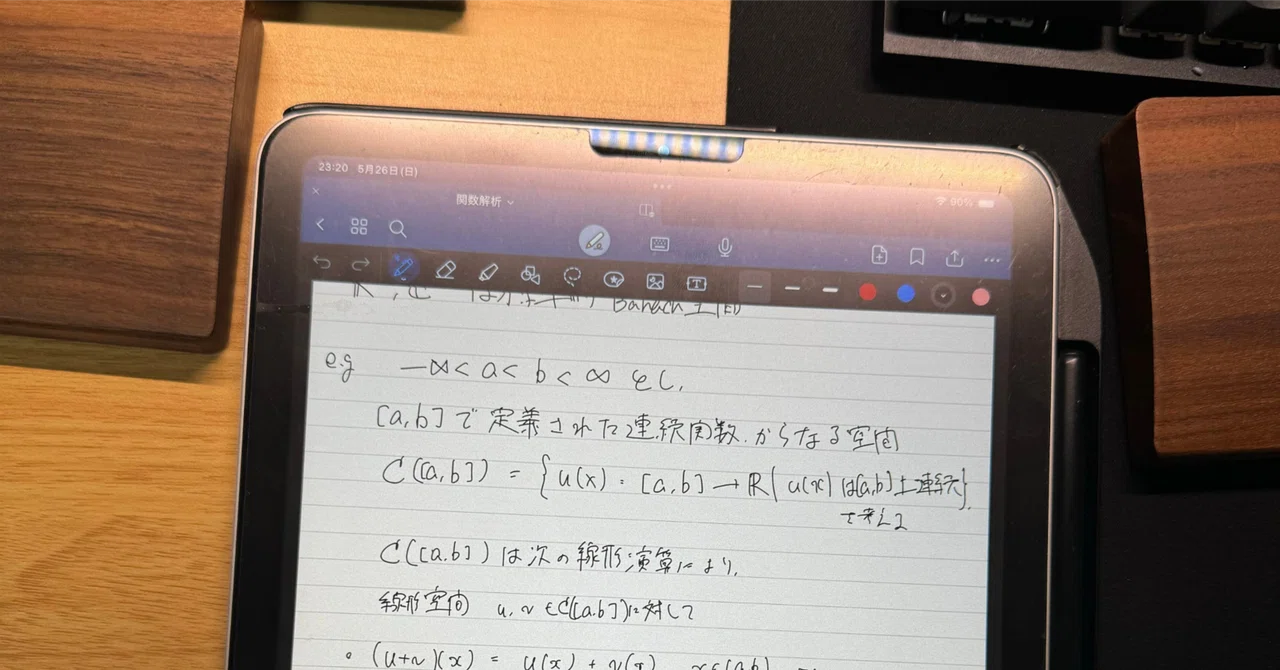 23:20 5月26日(日)
90%
関数解析
Banach
e.g −∞ < a < b < ∞ とし,
[a,b]で定義された連続関数からなる空間
C([a,b]) = {u(x): [a,b] → ℝ | u(x)は[a,b]上連続}.
を考える
C([a,b])は次の線形演算により,
線形空間 u, v ∈ C([a,b])に対して
• (u+v)(x) = u(x) + v(x)